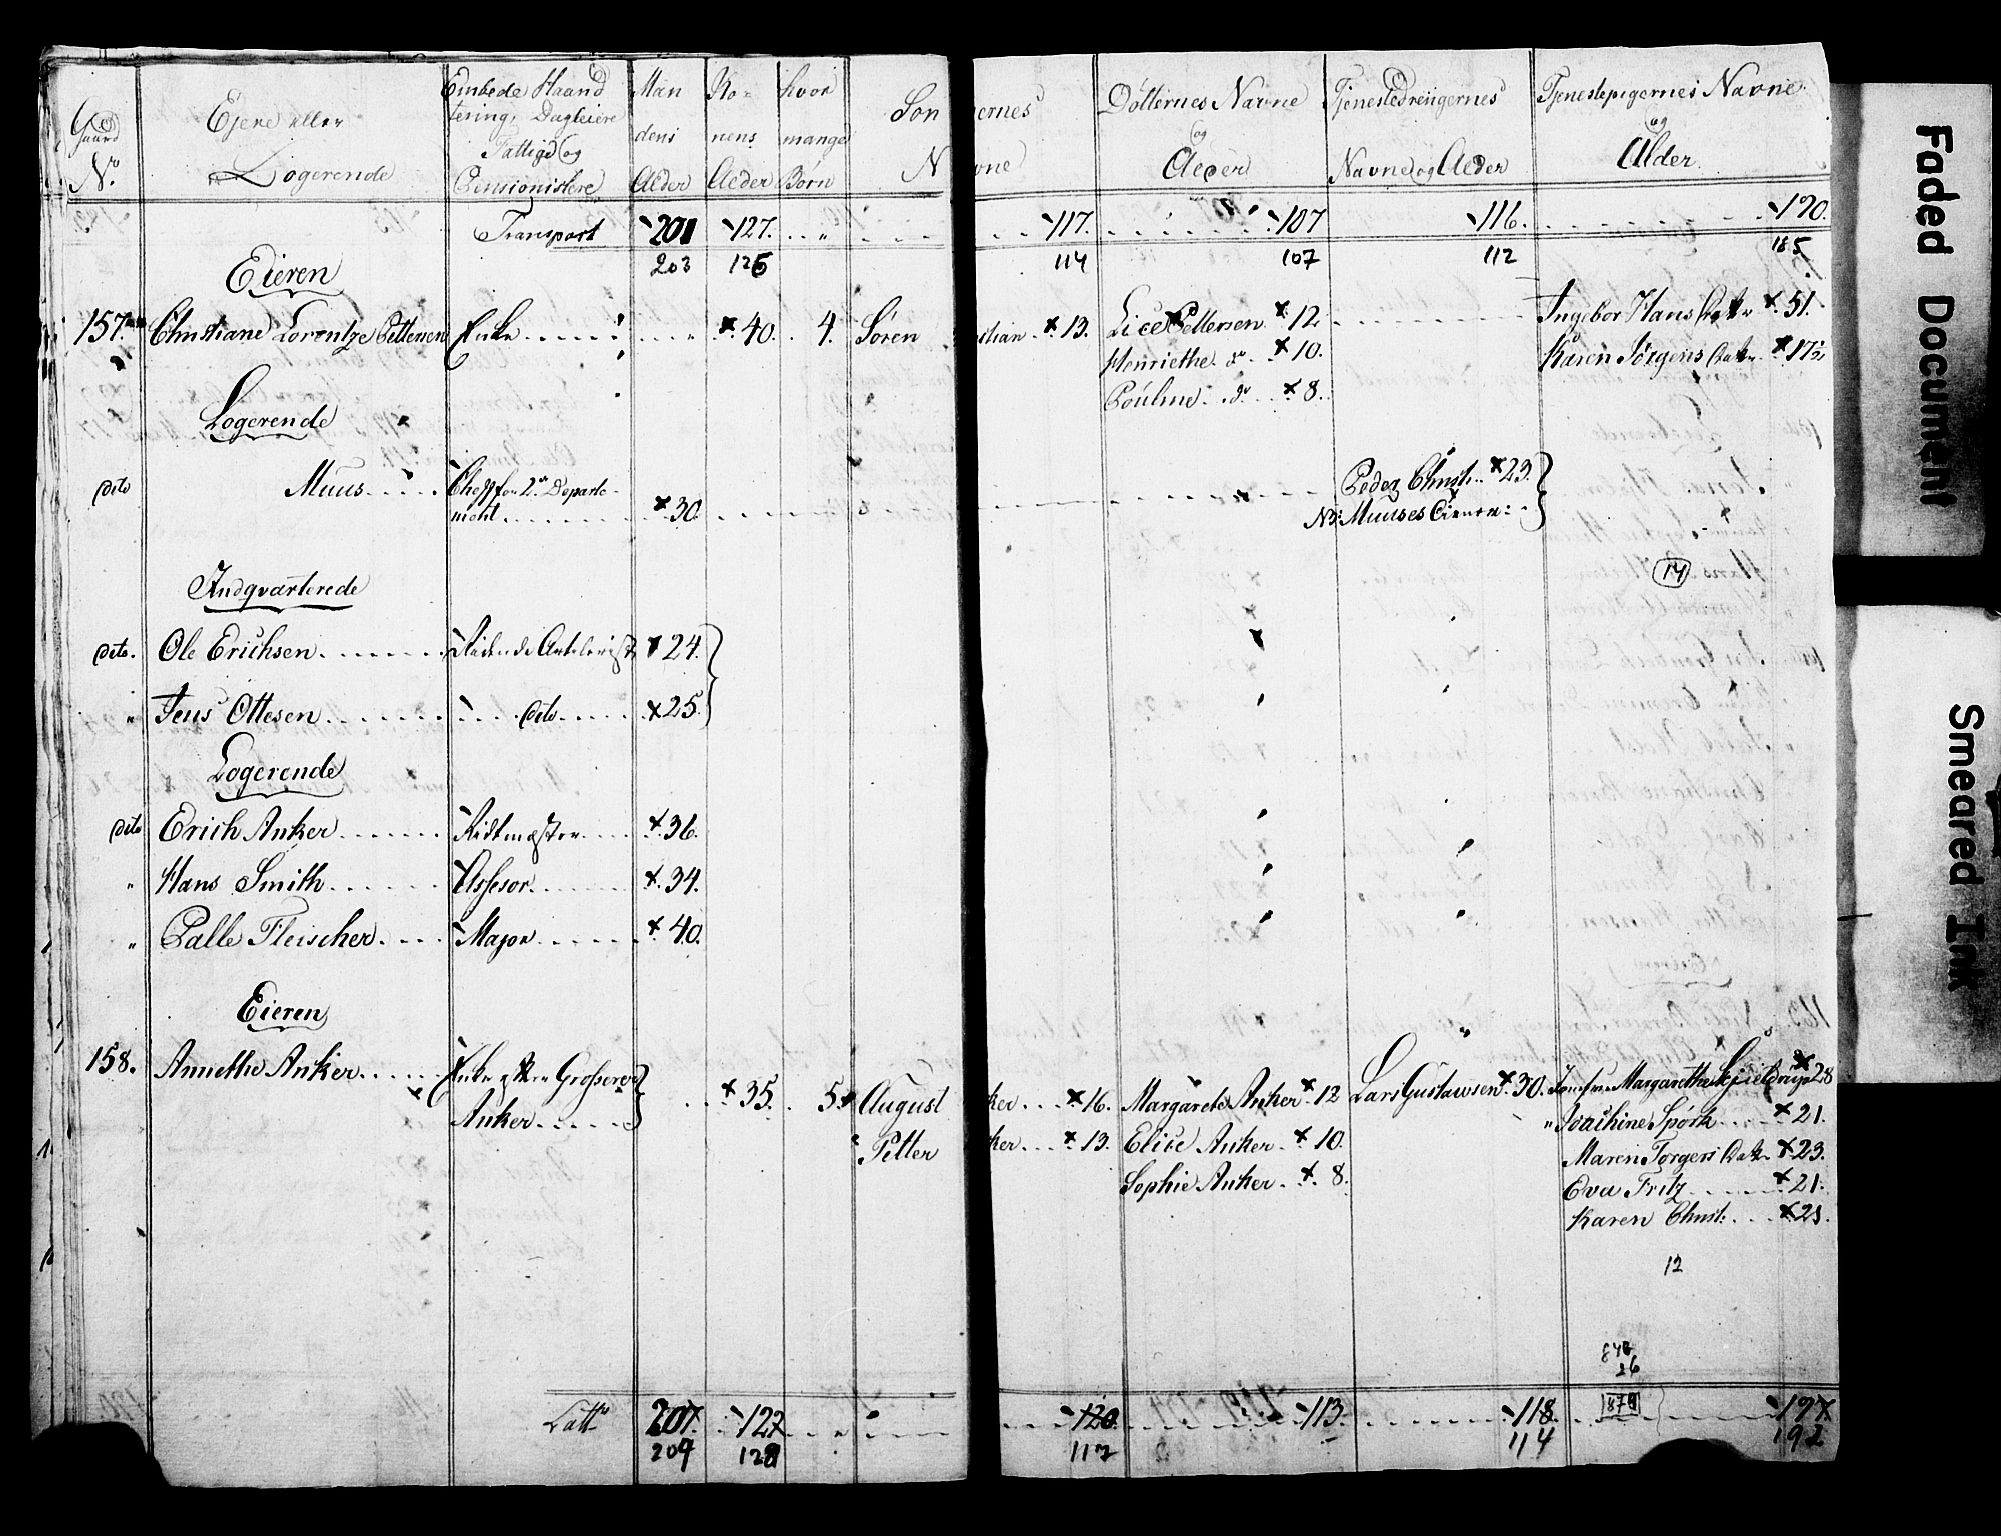 Gaard N.º | Ejere eller Logerende | Embede Haandtering, Dagleiere Fattige og Pensionistere | Mandens Alder | Konens Alder | hvor mange Børn | Søn N
ernes vne | Døtternes Navne og Alder | Tjenestedrengernes Navne og Alder | Tjenestepigernes Navne og Alder.
Transport 201 127. 117. 107 116. 190.
203 126 114 107 112 185
Eieren
157. Christiane Lorentze Pettersen Enke 40. 4. Søren stian 13. Lice Pettersen 12 Ingebor Hans Dat. 51.
Henriethe do 10. Karen Jørgens Dat. 17½
Pouline do 8.
Logerende
dito Muus Chef for 2den Departe- Peder Christ. 23.
ment 30. NB: Muuses Tienere:
14
Indqvarterede
dito. Ole Erichsen Ridende Artelerist 24.
" Jens Ottesen dito 25.
Logerende
dito Erich Anker Ridtmæster 36.
" Hans Smith Assesor 34.
" Palle Fleischer Major 40.
Eieren
158. Annethe Anker Enke efter Grosserer 35. 5 August ker 16. Margarete Anker 12 Lars Gustawsen 30. Jomfrue Margarethe 28
Anker Petter ker 13. Elice Anker 10. " Joachine Spørk 21.
Sophie Anker 8. Maren Torgers Dat. 23.
Eva Fritz 21.
Karen Christ: 21.
12
26
Latt. 207. 127 120 113. 118. 197.
209 128 117 114 192
Faded Document
Smeared Ink